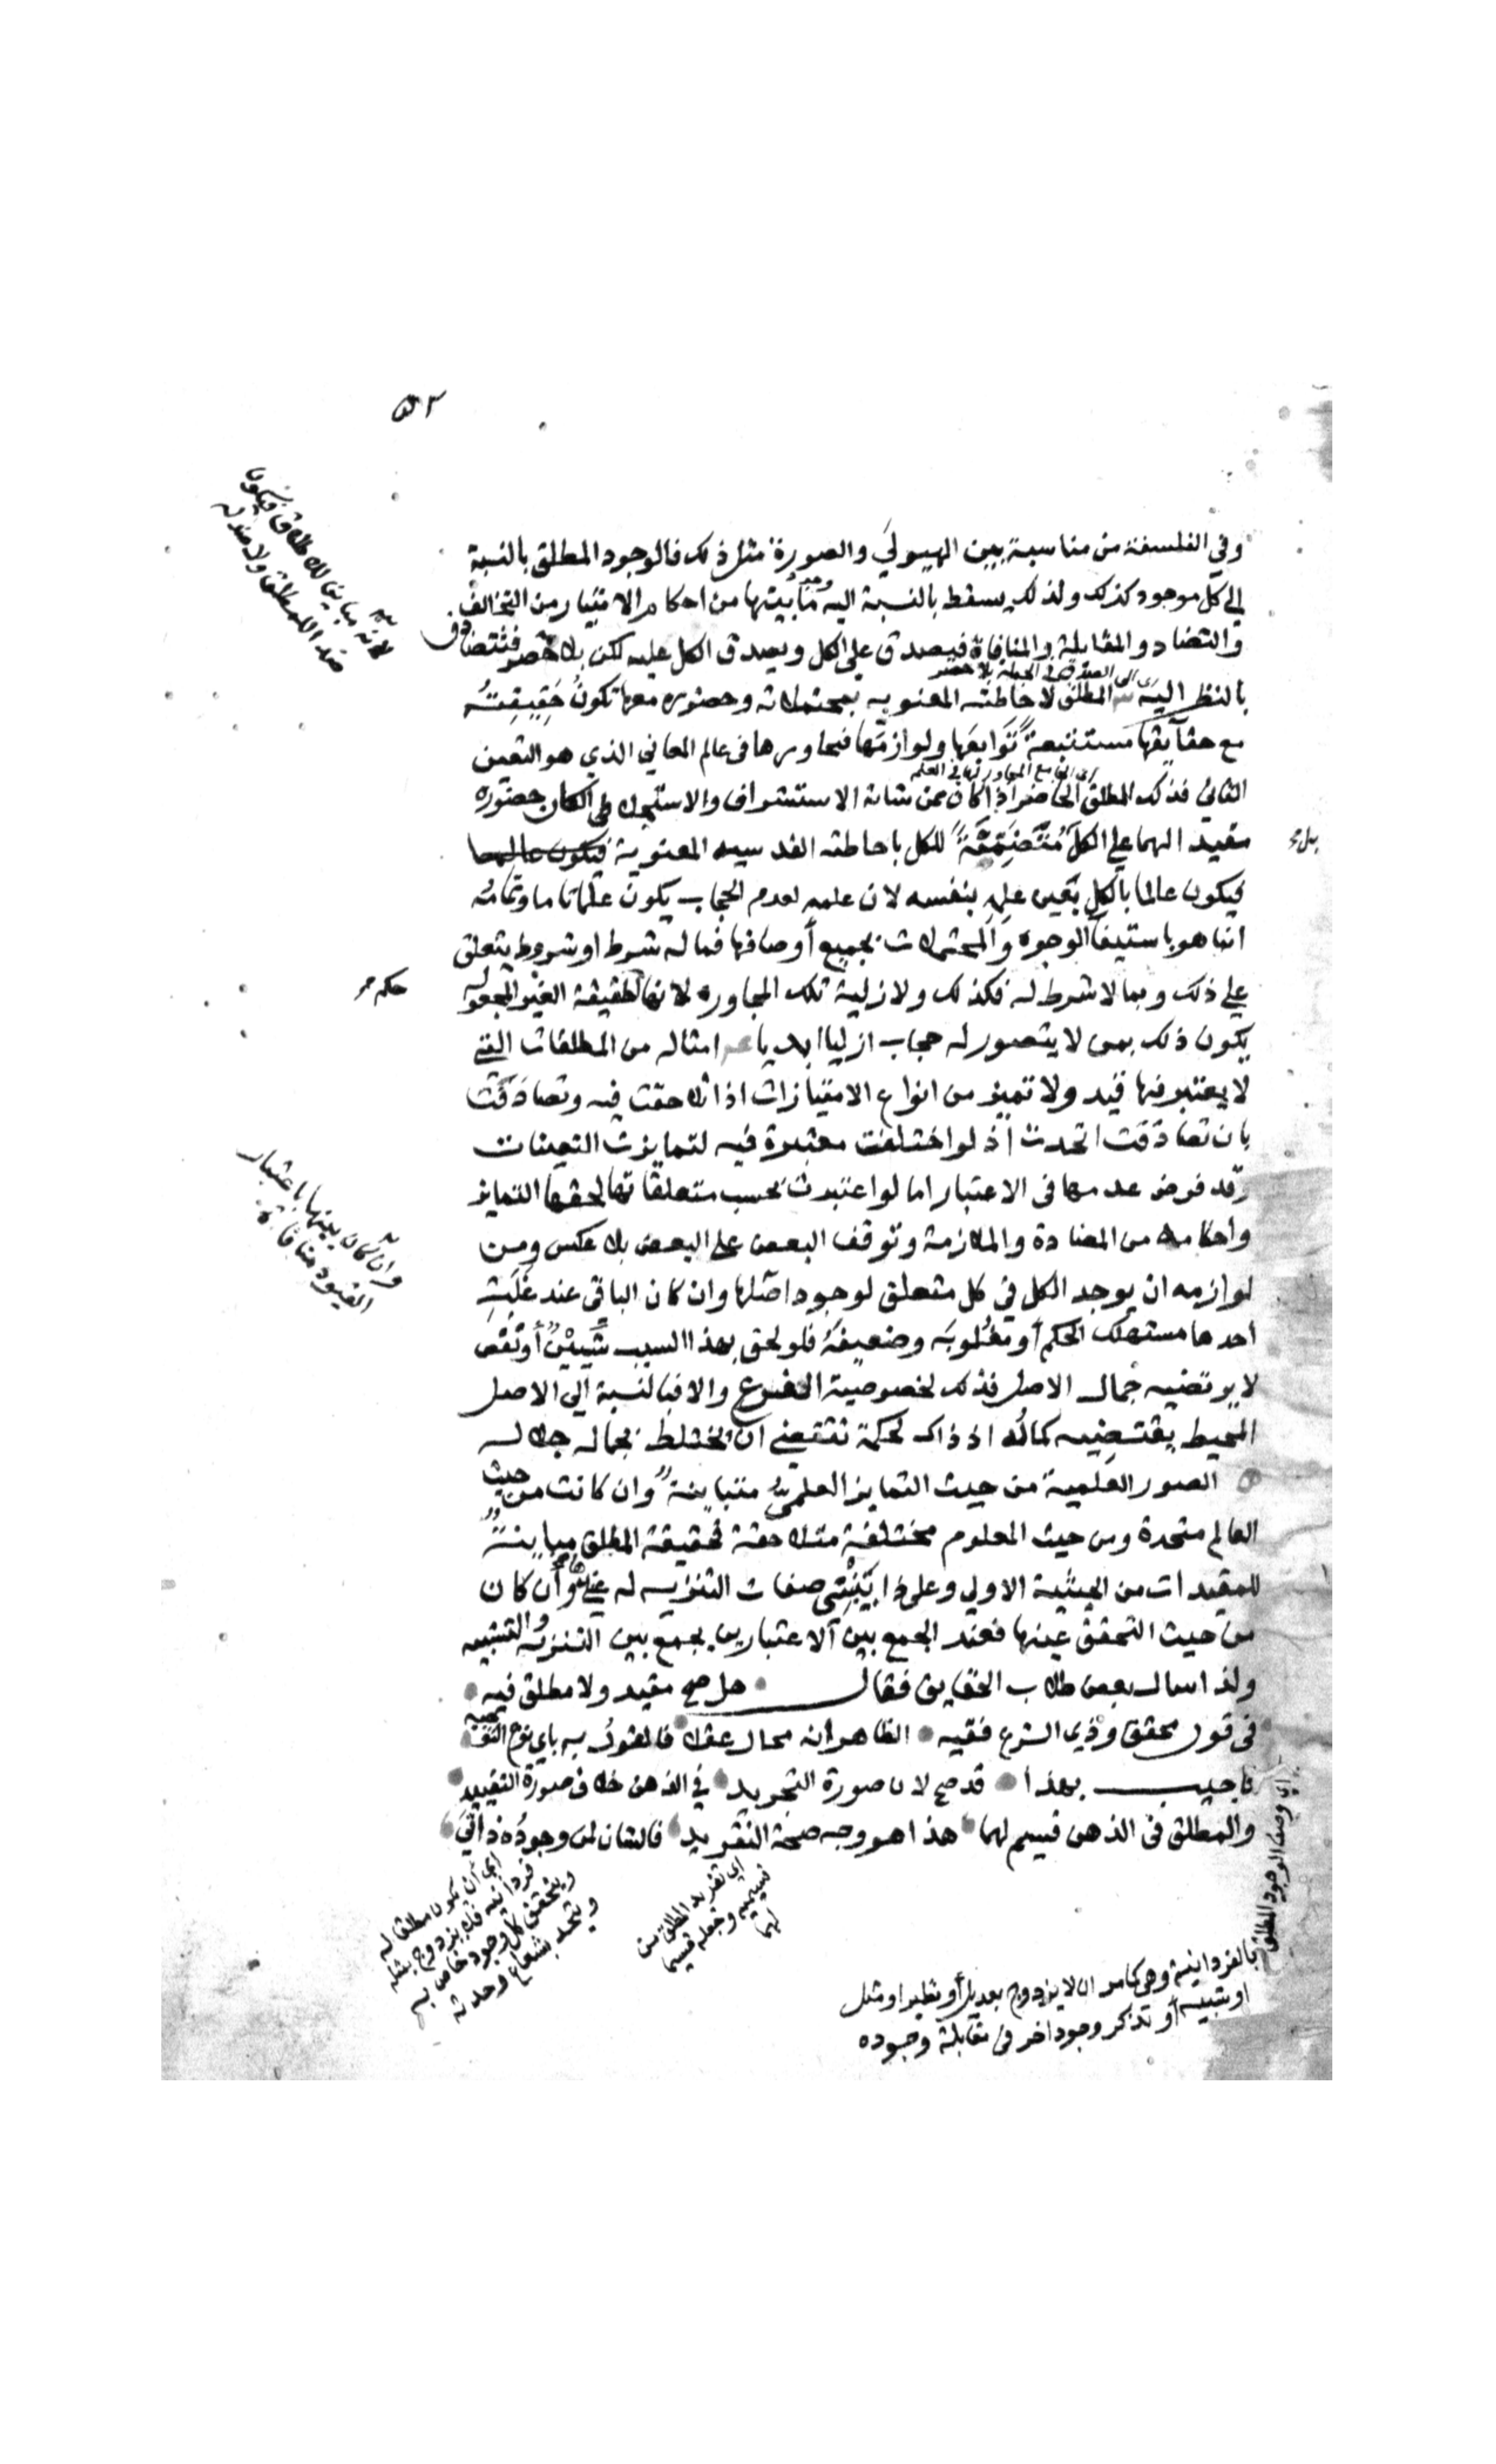 وفي الفلسفة من مناسبة بين الهيولي والصورة مثل ذلك فالوجود المطلق بالنسبة
الي كل موجود كذلك ولذلك يسقط بالنسبة اليه ما بينها من احكام الامتياز من التخالف
والتضاد والمقابلة والمنافاة فيصدق علي الكل ويصدق الكل عليه لكن بلا حصر فتتصادق
بالنظر اليه المطلق لاحاطته المعنويه بمحتملاته وحضوره معها تكون حقيقته
مع حقايقها مستتبعة توابعها ولوازمها فيحاورها في عالم المعاني الذي هو التعين
الثاني فذلك المطلق الحاضر اذا كان ممن شانه الاستشراف والاستجلا علي الكل كان حضوره
مقيد الهما علي الكل للكل باحاطته القدسيه المعنوية
فيكون عالما بالكل بعين علمه بنفسه لان علمه لعدم الحجاب يكون علما تاما وتمامه
انما هو باستيفا الوجوه والمحتملات بجميع أوصافها فما له شرط او شروط يتعلق
علي ذلك وبما لا شرط له فكذلك ولازلية تلك المجاوره لانها لحقيقة الغير المجعوله
يكون ذلك بمن لا يتصور له حجاب ازليا ابديا امثاله من المطلقات التي
لا يعتبر فيها قيد ولا تميز من انواع الامتيازات اذا تلاحقت فيه وتصادقت
بان تصادقت اتحدت اذ لو اختلفت معتبرة فيه لتمايزت التعينات
وقد فرض عدمها في الاعتبار اما لو اعتبرت بحسب متعلقاتها لحقها التمايز
واحكامه من المضادة والملازمة وتوقف البعض علي البعض بلا عكس ومن
لوازمه ان يوجد الكل في كل متعلق لوجود اصلها وان كان الباقي عند غلبة
احدها مستهلك الحكم أو مغلوبه وضعيفه فلو لحق بهذا السبب شين أو نقص
لا يرتضيه جمال الاصل فذلك لخصوصية الفروع والا فبالنسبة الي الاصل
المحيط يقتضيه كماله اذ ذاك لحكمة تقتضي ان يختلط بجماله جلاله
الصور العلمية من حيث التمايز العلمي متباينة وان كانت من حيث
العالم متحدة ومن حيث المعلوم مختلفة متلاحقة فحقيقة المطلق مباينة
للمقيدات من الحيثية الاولي وعلي ذا يبتني صفات التنزيه له وأن كان
من حيث التحقق عينها فعند الجمع بين الاعتبارين يجمع بين التنزيه والتشبيه
ولذا سال بعض طلاب الحقايق فقال هل صح مقيد ولا مطلق فيه
في قول محقق وذي الشرع فقيه الظاهر انه محال عقلا فالقول به باي نوع
فاجيب بهذا قد صح لان صورة التجريد في الذهن خلاف صورة التقييد
والمطلق في الذهن قسيم لهما هذا هو وجه صحة التفريد فالتفان لمن وجوده ذاتي
لانه مباين لذلك الاطلاق فيكون
ضد اللمطلاق ولا ضد له
حكم
وان كان بينها باعتبار
القيود منافاة
اي وصف الوجود المطلق
بالفردانية وهي كما مر ان لا يزدوج بعديل أو نظير او مثل
او شبيه أو تذكر وجود اخر في مقابلة وجوده
اي تفريد المطلق من
قسيميه وجعله قسيما
لهما
اي ان يكون مطلقا له
فردانية فلا يزدوج بمثله
ويتحقق كل وجود خاص به
ويتحد بشعاع وحدته